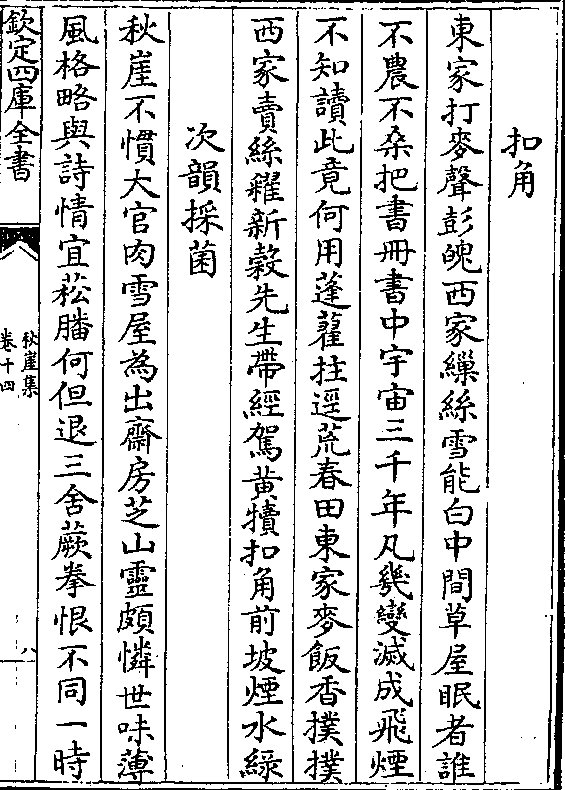 扣角
東家打麥聲彭魄西家繅絲雪能白中間草屋眠者誰
不農不桑把書冊書中宇宙三千年凡幾變滅成飛煙
不知讀此竟何用蓬藋拄逕荒春田東家麥飯香撲撲
西家賣絲糴新榖先生帶經駕黃犢扣角前坡煙水緑
次韻採菌
秋崖不慣大官肉雪屋為出齋房芝山靈頗憐世味薄
風格略與詩情宜菘膰何但退三舍蕨拳恨不同一時
欽定四庫全書
秋崖集
卷十四
八